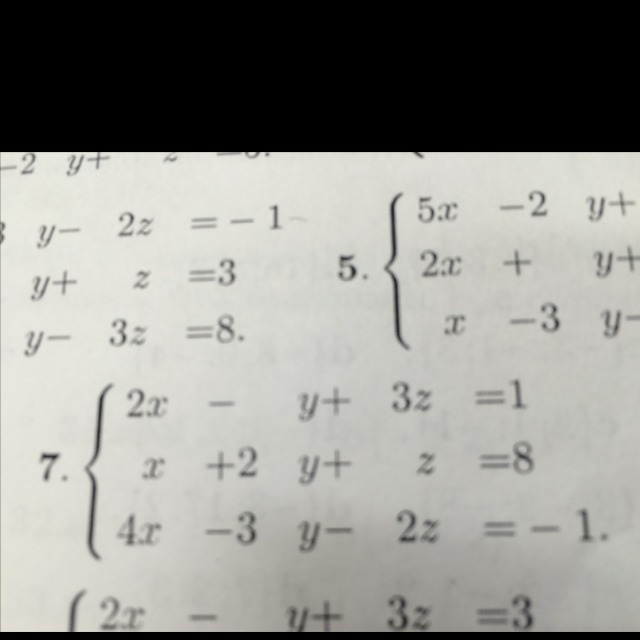 -2 y+ z
y- 2z =- 1
y+ z =3
y- 3z =8.
5. 5x -2 y+
2x + y+
x -3 y-
7. 2x - y+ 3z =1
x +2 y+ z =8
4x -3 y- 2z =- 1.
2x - y+ 3z =3